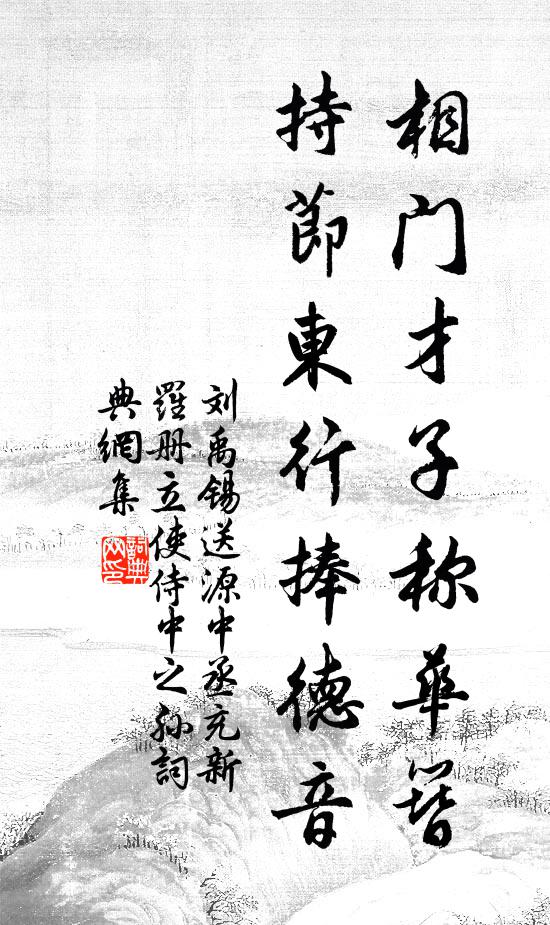 相门才子称华簪
持節東行捧德音
刘禹锡送源中丞充新
羅册立使侍中之孙詞
典網集
詞典
网印